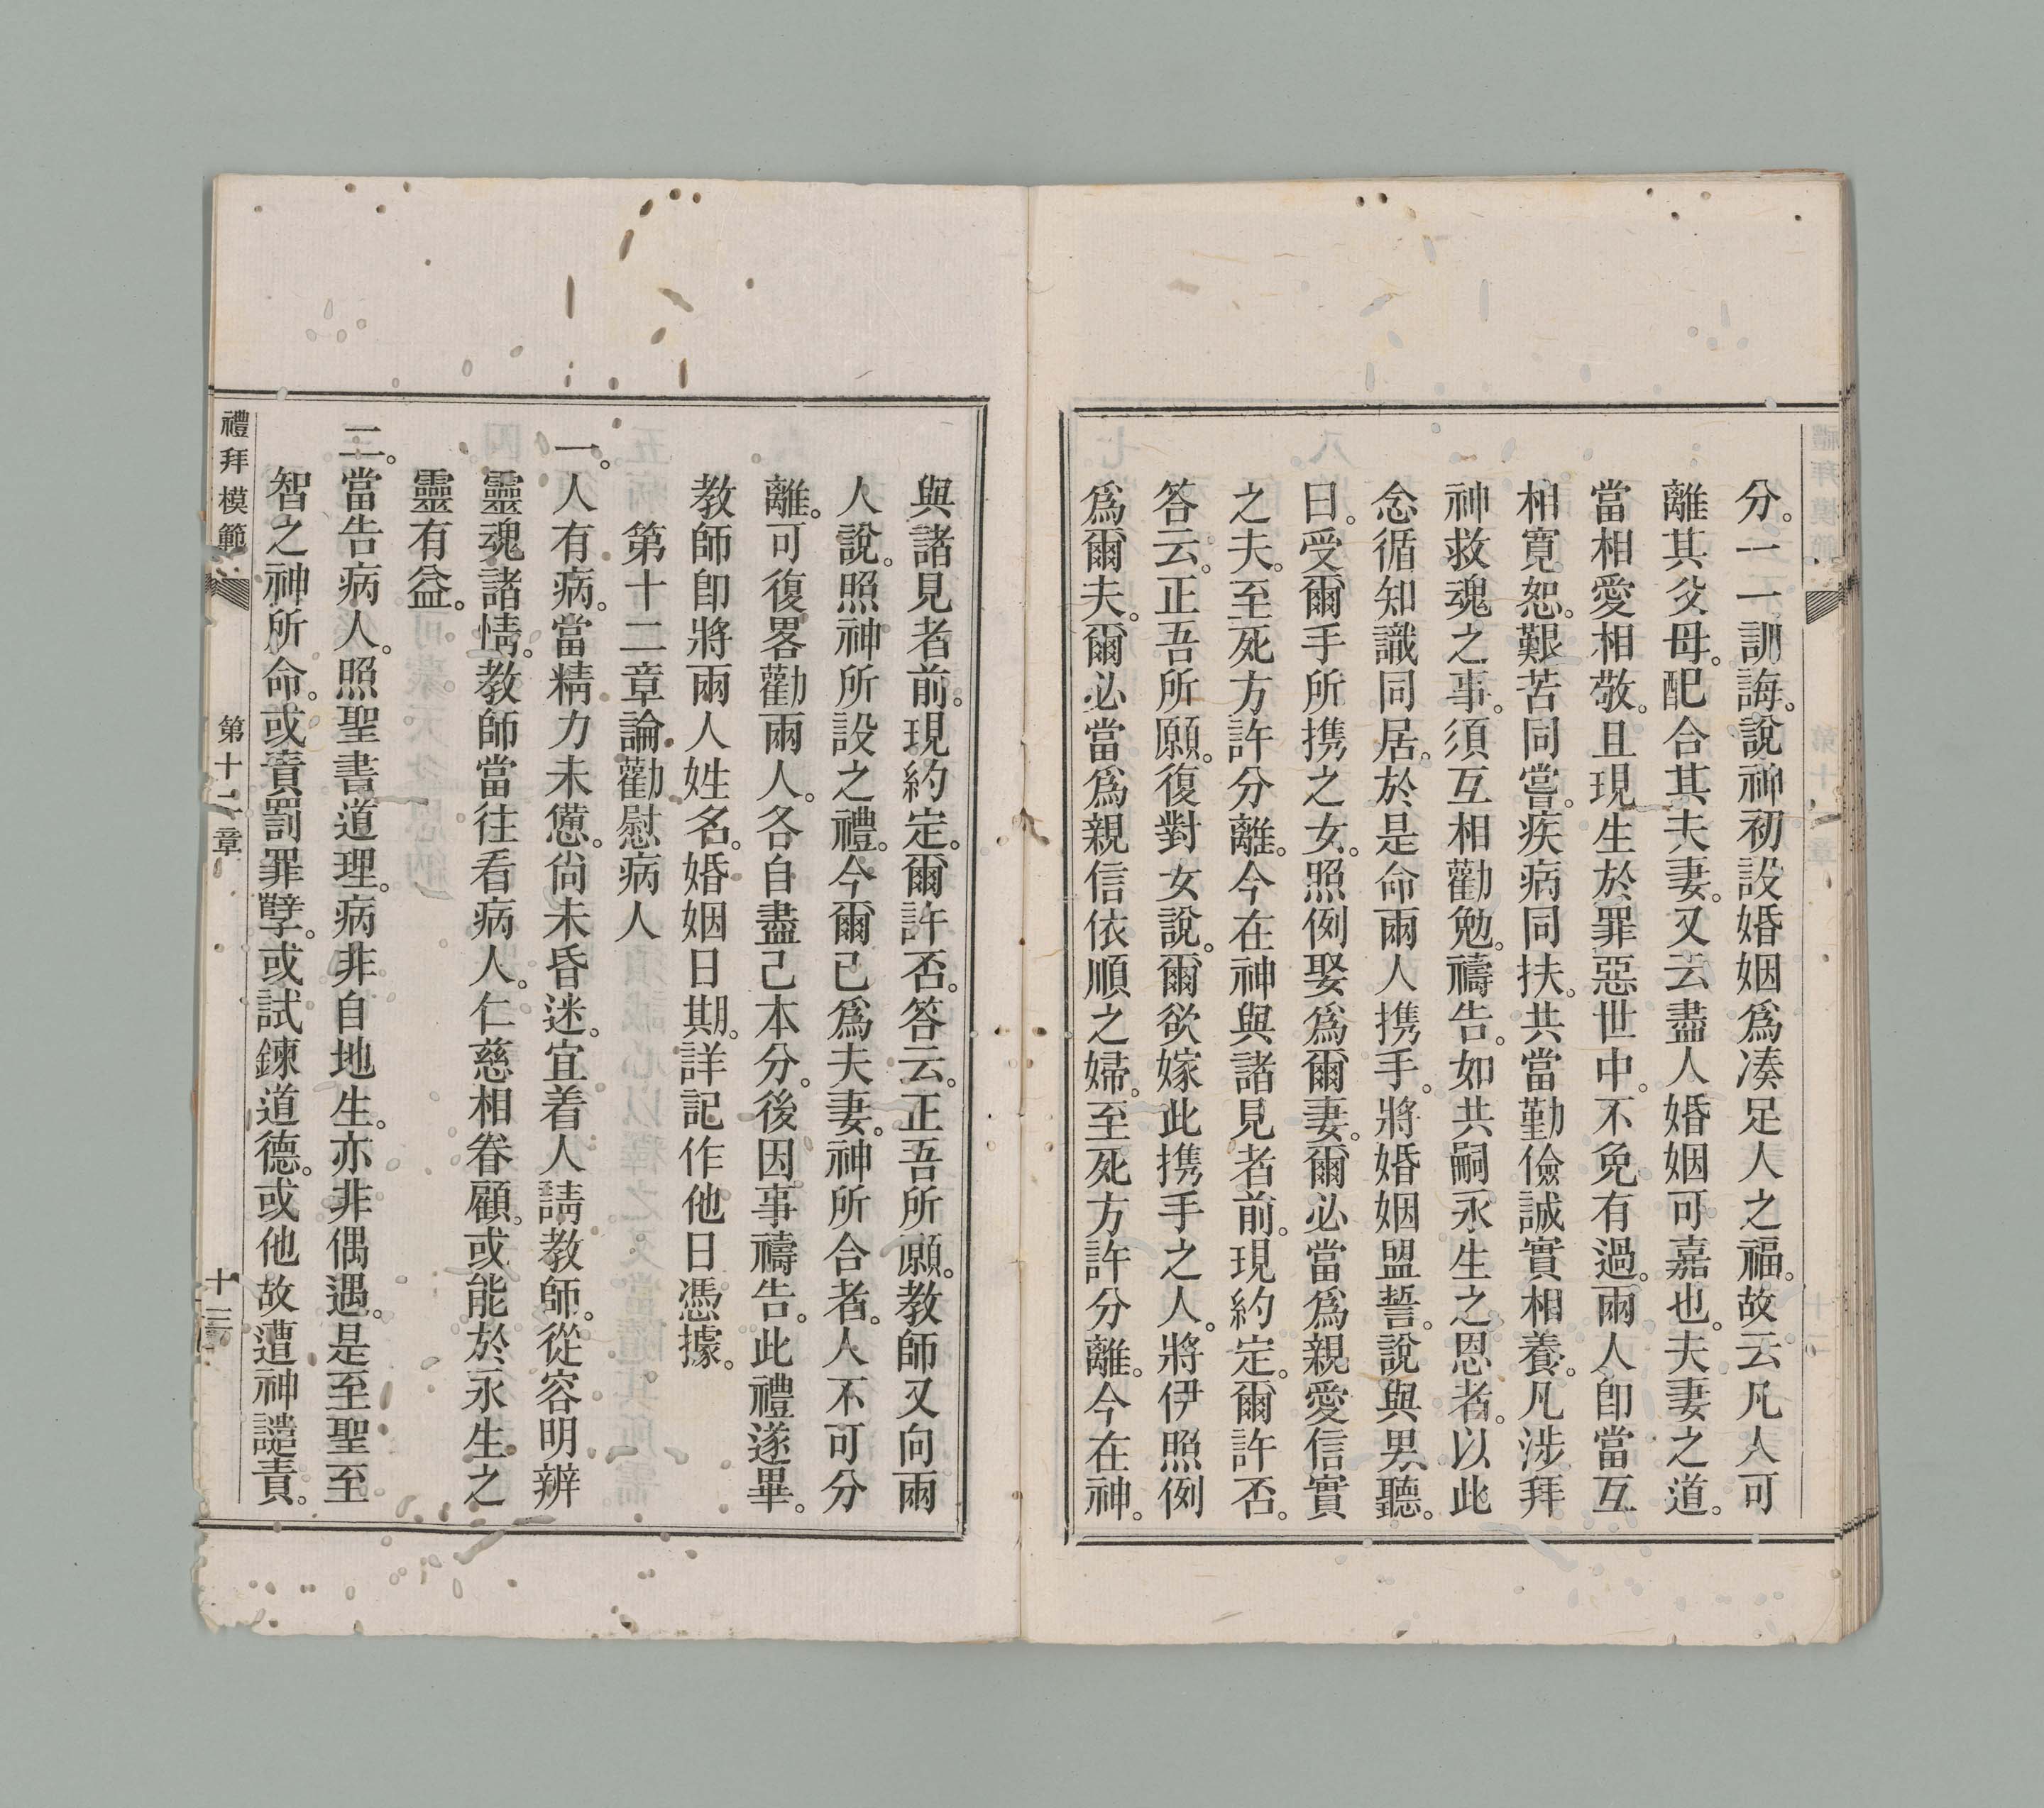 分。一一訓誨。說神初設婚姻爲湊足人之福。故云凡人可
離其父母。配合其夫妻。又云盡人婚姻可嘉也。夫妻之道。
當相愛相敬。且現生於罪惡世中。不免有過。兩人卽當互
相寬恕。艱苦同嘗。疾病同扶。共當勤儉誠實相養。凡涉拜
神救魂之事。須互相勸勉。禱告。如共嗣永生之恩者。以此
念循知識同居。於是命兩人携手。將婚姻盟誓。說與男聽。
曰。受爾手所携之女。照例娶爲爾妻。爾必當爲親愛信實
之夫。至死方許分離。今在神與諸見者前。現約定。爾許否。
答云。正吾所願。復對女說。爾欲嫁此携手之人。將伊照例
爲爾夫。爾必當爲親信依順之婦。至死方許分離。今在神。
與諸見者前。現約定。爾許否。答云。正吾所願。教師又向兩
人說。照神所設之禮。今爾已爲夫妻。神所合者。人不可分
離。可復畧勸兩人。各自盡己本分。後因事禱告。此禮遂畢。
教師卽將兩人姓名。婚姻日期。詳記作他日憑據。
第十二章論勸慰病人
一。人有病。當精力未憊。尚未昏迷。宜着人請教師。從容明辨
靈魂諸情。教師當往看病人。仁慈相眷顧。或能於永生之
靈有益。
二。當告病人。照聖書道理。病非自地生。亦非偶遇。是至聖至
智之神所命。或責罰罪孽。或試鍊道德。或他故遭神譴責。
禮拜模範 第十二章 十三